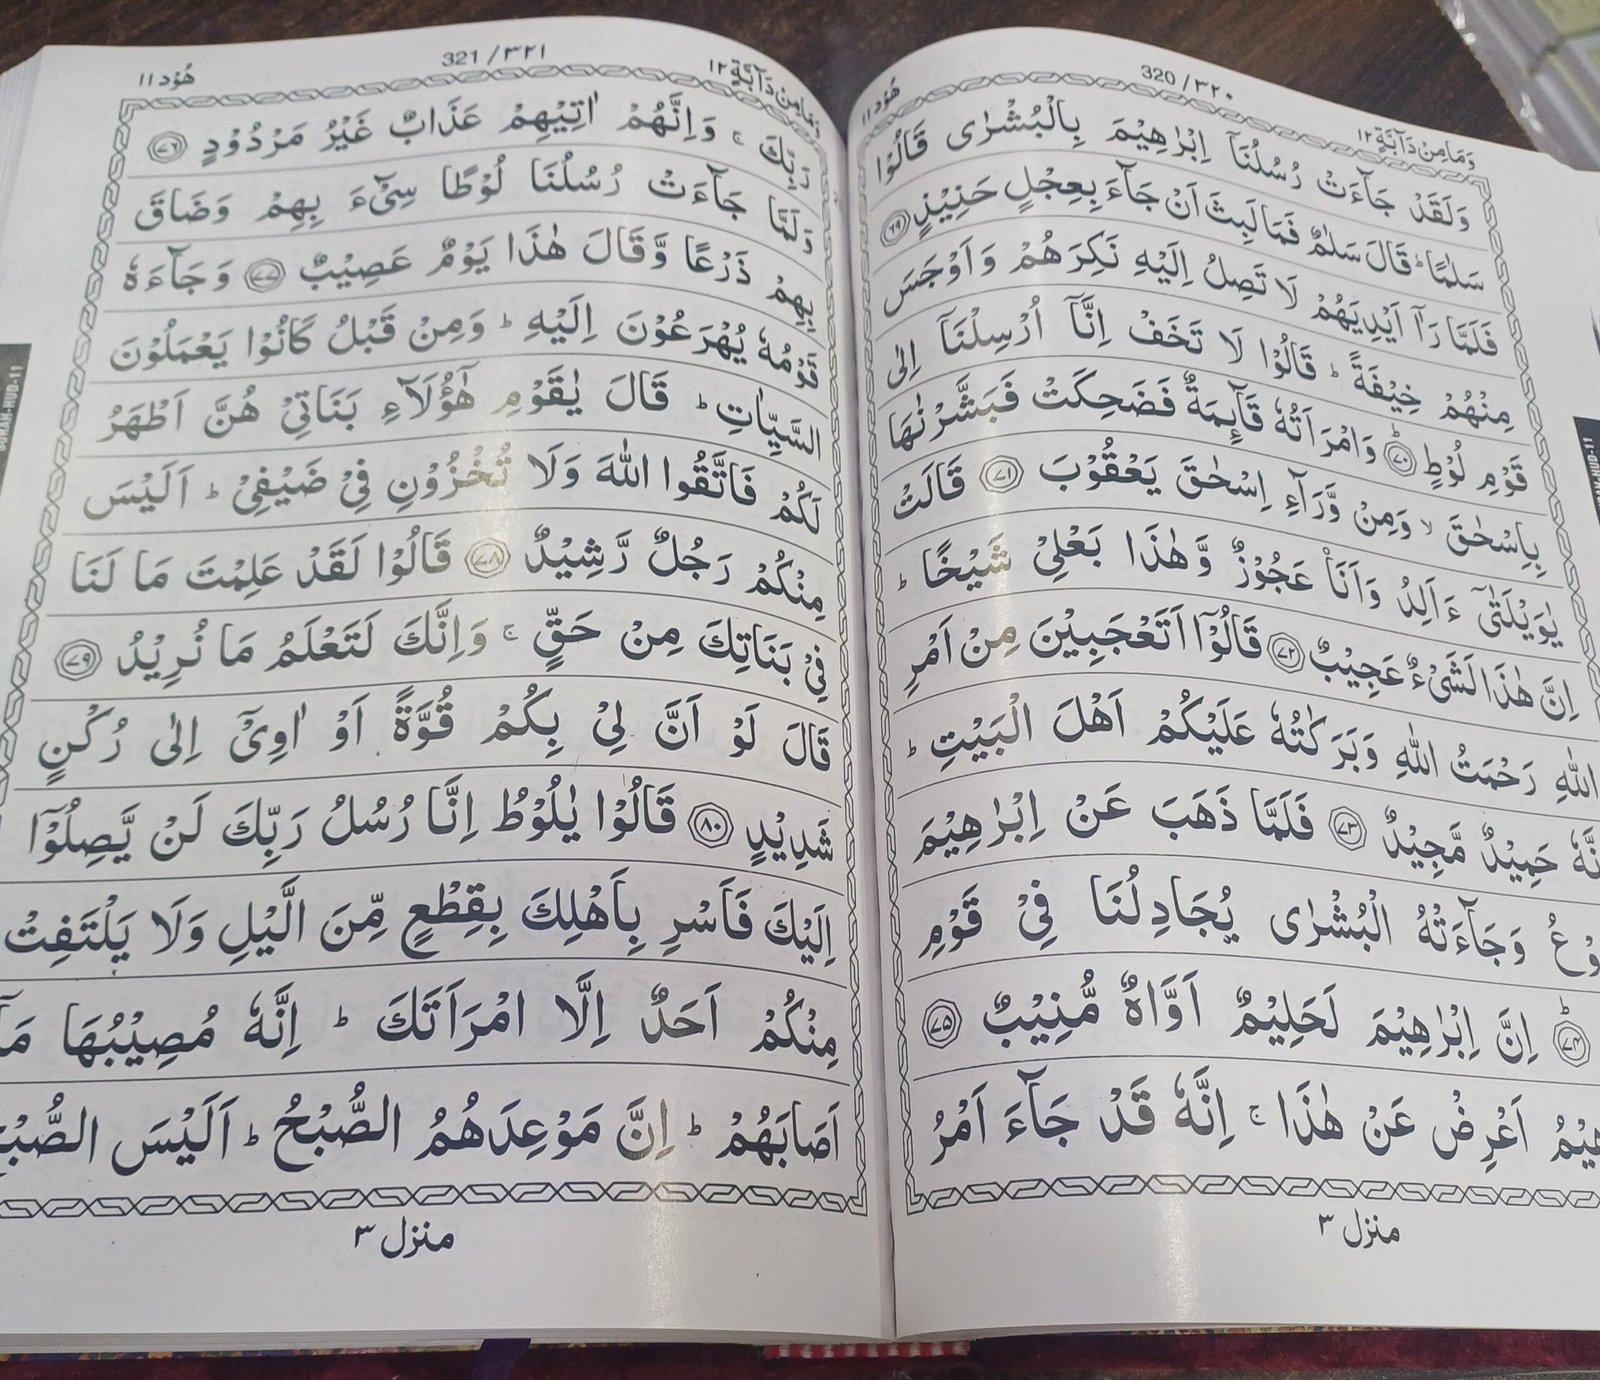 وَمَا مِنْ دَآبَّةٍ ١٢
320 / ٣٢٠
هُوْد ١١
وَلَقَدْ جَآءَتْ رُسُلُنَاۤ اِبْرٰهِيْمَ بِالْبُشْرٰى قَالُوْا
سَلٰمًا ؕ قَالَ سَلٰمٌ فَمَا لَبِثَ اَنْ جَآءَ بِعِجْلٍ حَنِيْذٍ ٦٩
فَلَمَّا رَاٰۤ اَيْدِيَهُمْ لَا تَصِلُ اِلَيْهِ نَكِرَهُمْ وَاَوْجَسَ
مِنْهُمْ خِيْفَةً ؕ قَالُوْا لَا تَخَفْ اِنَّاۤ اُرْسِلْنَاۤ اِلٰى
قَوْمِ لُوْطٍ ؕ ٧٠ وَامْرَاَتُهٗ قَآئِمَةٌ فَضَحِكَتْ فَبَشَّرْنٰهَا
بِاِسْحٰقَ ۙ وَمِنْ وَّرَآءِ اِسْحٰقَ يَعْقُوْبَ ٧١ قَالَتْ
يٰوَيْلَتٰٓى ءَاَلِدُ وَاَنَا عَجُوْزٌ وَّهٰذَا بَعْلِىْ شَيْخًا ؕ
اِنَّ هٰذَا لَشَىْءٌ عَجِيْبٌ ٧٢ قَالُوْۤا اَتَعْجَبِيْنَ مِنْ اَمْرِ
اللّٰهِ رَحْمَتُ اللّٰهِ وَبَرَكٰتُهٗ عَلَيْكُمْ اَهْلَ الْبَيْتِ ؕ
نَّهٗ حَمِيْدٌ مَّجِيْدٌ ٧٣ فَلَمَّا ذَهَبَ عَنْ اِبْرٰهِيْمَ
وْعُ وَجَآءَتْهُ الْبُشْرٰى يُجَادِلُنَا فِىْ قَوْمِ
ؕ ٧٤ اِنَّ اِبْرٰهِيْمَ لَحَلِيْمٌ اَوَّاهٌ مُّنِيْبٌ ٧٥
هِيْمُ اَعْرِضْ عَنْ هٰذَا ۚ اِنَّهٗ قَدْ جَآءَ اَمْرُ
منزل ٣
وَمَا مِنْ دَآبَّةٍ ١٢
321 / ٣٢١
هُوْد ١١
رَبِّكَ ۚ وَاِنَّهُمْ اٰتِيْهِمْ عَذَابٌ غَيْرُ مَرْدُوْدٍ ٧٦
وَلَمَّا جَآءَتْ رُسُلُنَا لُوْطًا سِىْٓءَ بِهِمْ وَضَاقَ
بِهِمْ ذَرْعًا وَّقَالَ هٰذَا يَوْمٌ عَصِيْبٌ ٧٧ وَجَآءَهٗ
قَوْمُهٗ يُهْرَعُوْنَ اِلَيْهِ ؕ وَمِنْ قَبْلُ كَانُوْا يَعْمَلُوْنَ
السَّيِّاٰتِ ؕ قَالَ يٰقَوْمِ هٰٓؤُلَآءِ بَنَاتِىْ هُنَّ اَطْهَرُ
لَكُمْ فَاتَّقُوا اللّٰهَ وَلَا تُخْزُوْنِ فِىْ ضَيْفِىْ ؕ اَلَيْسَ
مِنْكُمْ رَجُلٌ رَّشِيْدٌ ٧٨ قَالُوْا لَقَدْ عَلِمْتَ مَا لَنَا
فِىْ بَنَاتِكَ مِنْ حَقٍّ ۚ وَاِنَّكَ لَتَعْلَمُ مَا نُرِيْدُ ٧٩
قَالَ لَوْ اَنَّ لِىْ بِكُمْ قُوَّةً اَوْ اٰوِىْۤ اِلٰى رُكْنٍ
شَدِيْدٍ ٨٠ قَالُوْا يٰلُوْطُ اِنَّا رُسُلُ رَبِّكَ لَنْ يَّصِلُوْۤا
اِلَيْكَ فَاَسْرِ بِاَهْلِكَ بِقِطْعٍ مِّنَ الَّيْلِ وَلَا يَلْتَفِتْ
مِنْكُمْ اَحَدٌ اِلَّا امْرَاَتَكَ ؕ اِنَّهٗ مُصِيْبُهَا مَاۤ
اَصَابَهُمْ ؕ اِنَّ مَوْعِدَهُمُ الصُّبْحُ ؕ اَلَيْسَ الصُّبْحُ
منزل ٣